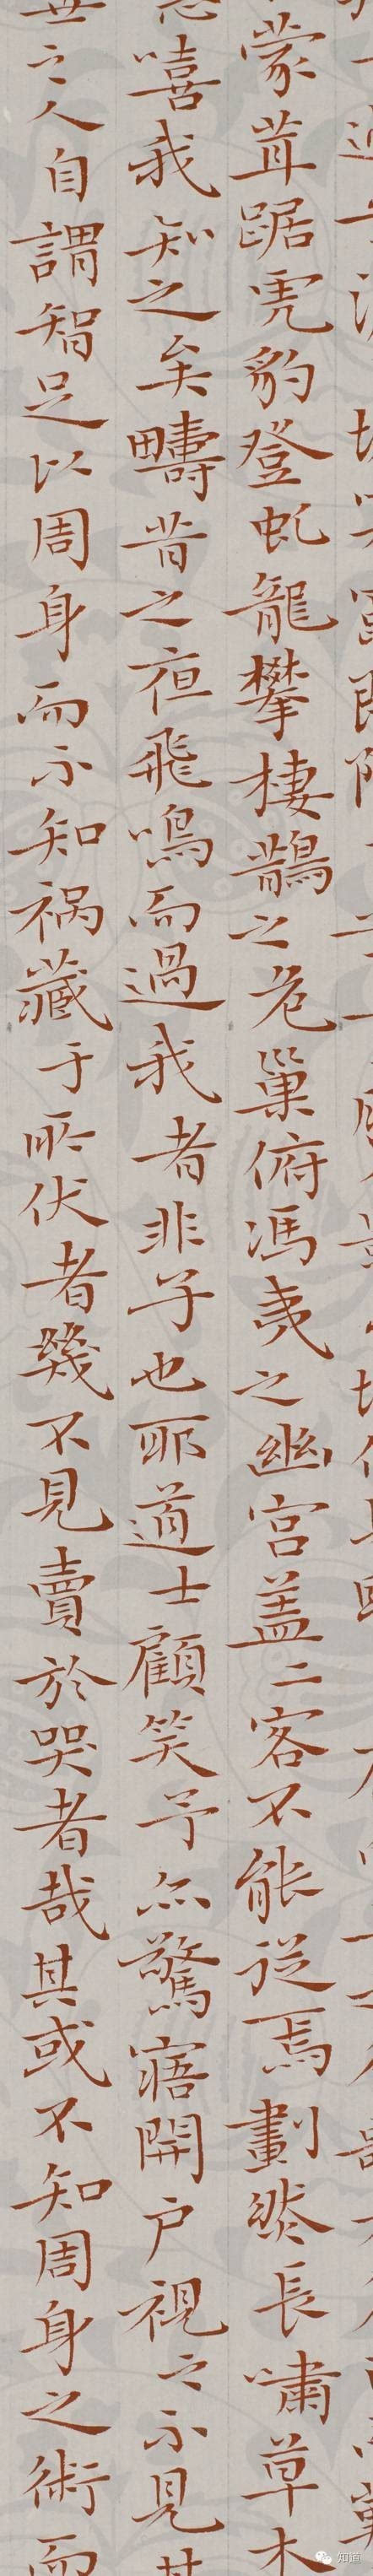 蒙茸踞虎豹登虬龍攀棲鶻之危巢俯馮夷之幽宮盖二客不能從焉劃然長嘯草木
嘻我知之矣疇昔之夜飛鳴而過我者非子也耶道士顧笑予亦驚寤開户視之不見其
世之人自謂智足以周身而不知禍藏于所伏者幾不見賣於哭者哉其或不知周身之術而
知道